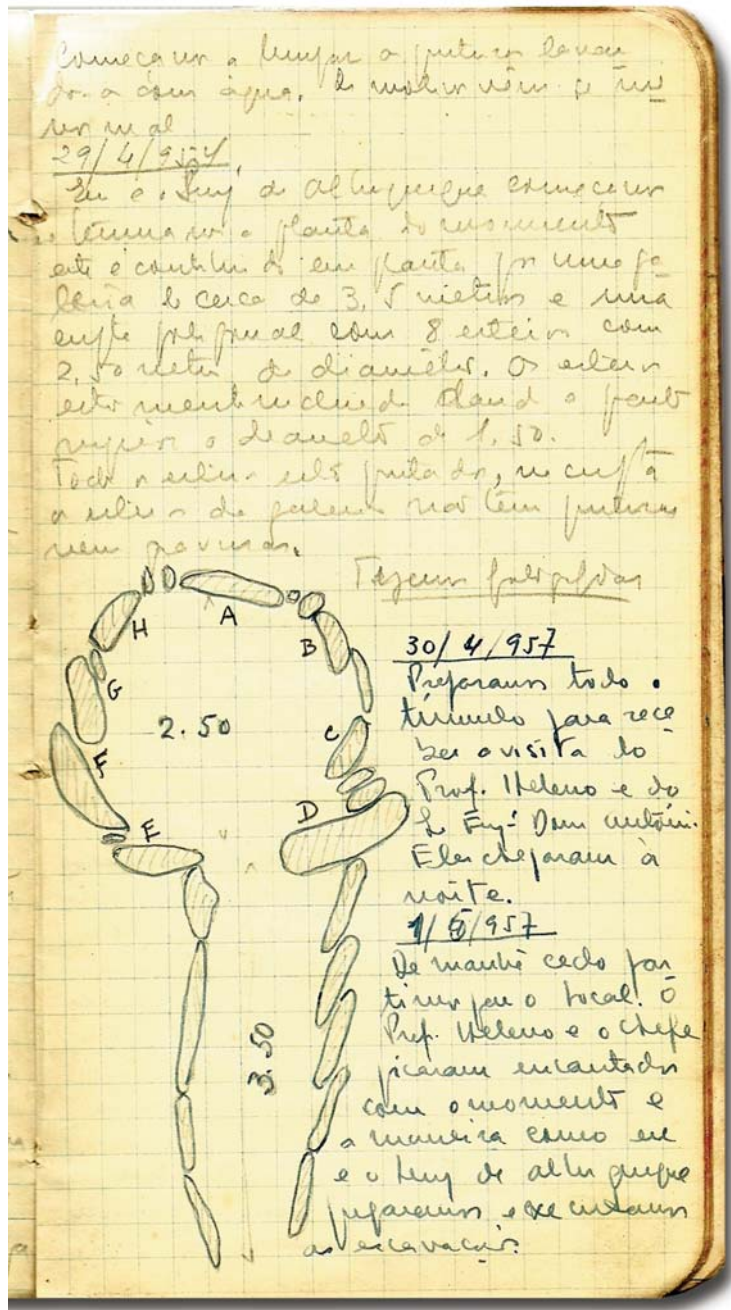 Começamos a limpar a pintura lavan
do-a com água.
29/4/957
Eu e o Luiz de Albuquerque começamos
e terminamos a planta do monumento
este é constituido em planta por uma ga
leria de cerca de 3,5 metros e uma
cripta poligonal com 8 esteios com
2,50 metros de diametro. Os esteios
estão inclinados dando a parte
superior o diametro de 1,50.
Todos os esteios estão pintados, na cripta
os esteios da galeria não têm pinturas
nem gravuras.
Fizemos fotografias
H
A
B
G
2.50
C
F
D
E
3.50
30/4/957
Preparamos todo o
túmulo para rece
ber a visita do
Prof. Heleno e do
Sr. Engº Dom António.
Eles chegaram à
noite.
1/5/957
De manhã cedo par
timos para o local. O
Prof. Heleno e o chefe
ficaram encantados
com o momento e
a maneira como eu
e o Luiz de Albuquerque
preparamos e executamos
as escavações.